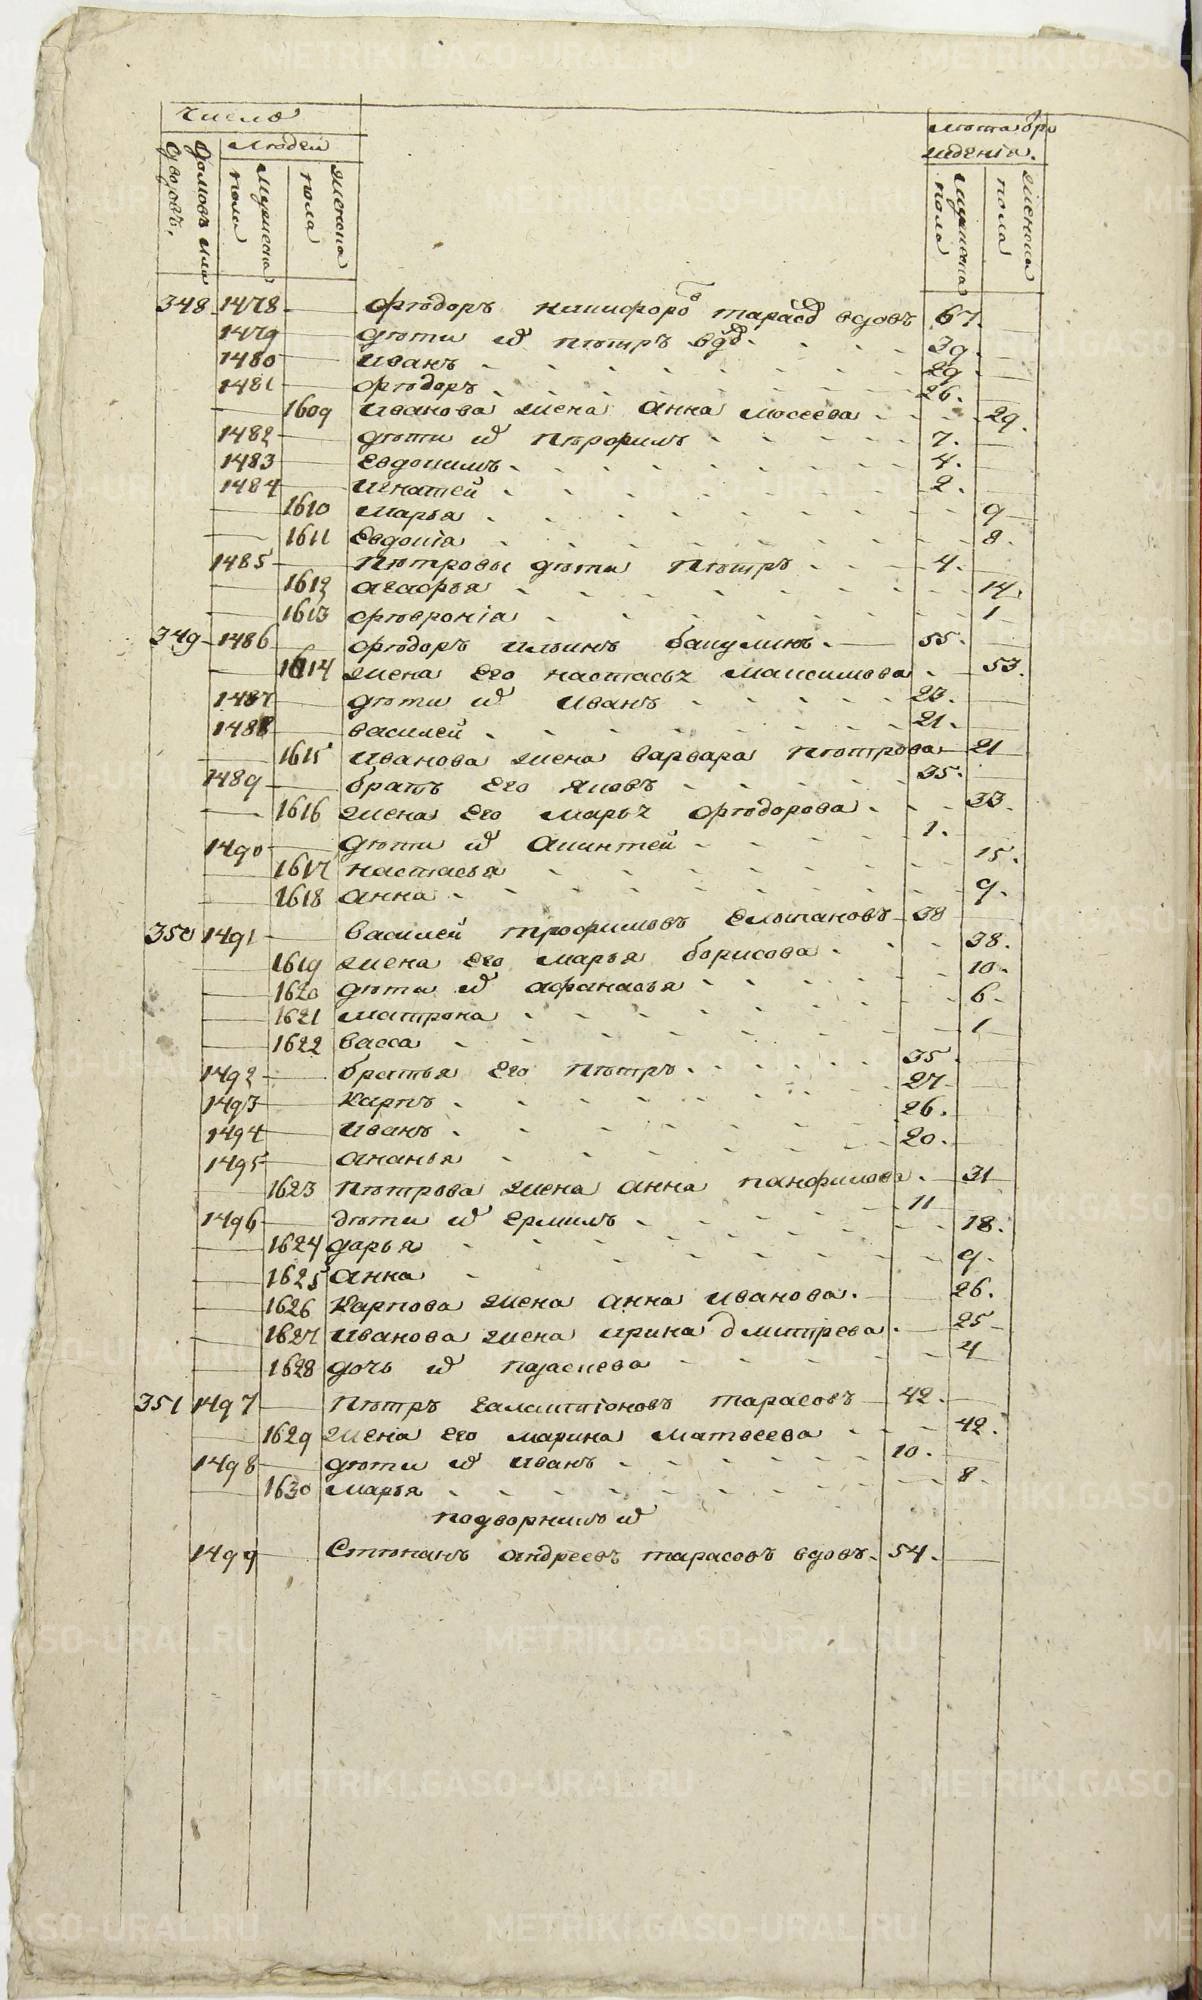 Число
Людей
Домовъ или дворовъ.
Мужеска пола
Женска пола
Лѣта
Мужеска пола
Женска пола
348 1478 Ѳѣдоръ Никифоровъ Тарасовъ вдовъ 67.
1479 дѣти ѿ Пѣтръ вдовъ 39.
1480 Иванъ 29.
1481 Ѳѣдоръ 26.
1609 Иванова жена Анна Мосеева 29.
1482 дѣти ѿ 7.
1483 Евдокимъ 4.
1484 Игнатей 2.
1610 Марья 9
1611 Евдокіа 8.
1485 Пѣтровы дѣти Пѣтръ 4.
1612 Агафья 14.
1613 Фѣвроніа 1
349 1486 Ѳѣдоръ Ильинъ Бакулинъ 55.
1614 жена его Настасья Максимова 53.
1487 дѣти ѿ Иванъ 23.
1488 Василей 21.
1615 Иванова жена Варвара Пѣтрова 21
1489 братъ его Яковъ 35.
1616 жена его Марья Ѳѣдорова 33.
1490 дѣти ѿ 1.
1617 Настасья 15.
1618 Анна 9.
350 1491 Василей Трофимовъ 38
1619 жена его Марья Борисова 38.
1620 дѣти ѿ Афанасья 10.
1621 Матрона 6.
1622 Васса 1
1492 братья его Пѣтръ 35.
1493 Карпъ 27
1494 Иванъ 26.
1495 Ананья 20.
1623 Пѣтрова жена Анна Панфилова 31
1496 дѣти ѿ Ермилъ 11
1624 Дарья 18.
1625 Анна 9.
1626 Карпова жена Анна Иванова 26.
1627 Иванова жена Ирина Дмитрева 25
1628 дочь ѿ 4
351 1497 Пѣтръ Галактіоновъ Тарасовъ 42.
1629 жена его Марина Матвеева 42.
1498 дѣти ѿ Иванъ 10.
1630 Марья 8
подворникъ ѿ
1499 Стѣпанъ Андреевъ Тарасовъ вдовъ 54.
METRIKI.GASO-URAL.RU